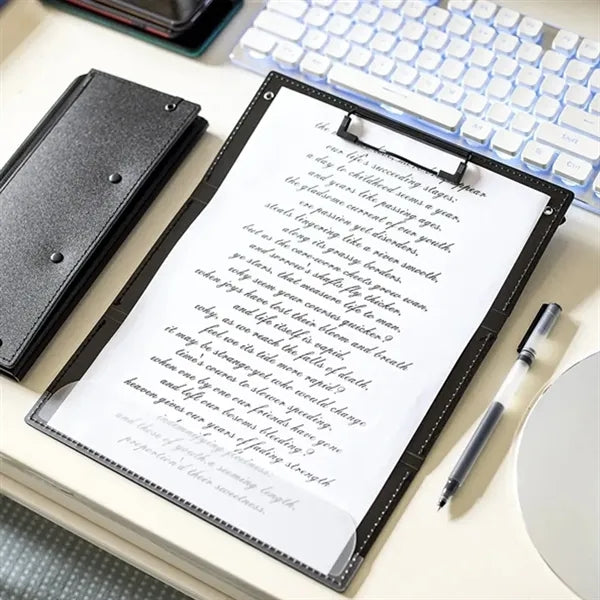 the appear
our life's succeeding stages;
a day to childhood seems a year,
and years like passing ages.
the gladsome current of our youth,
ere passion yet disorders,
steals lingering like a river smooth,
along its grassy borders.
but as the care-worn cheek grows wan,
and sorrow's shafts fly thicker,
ye stars, that measure life to man,
why seem your courses quicker?
when joys have lost their bloom and breath
and life itself is vapid,
why, as we reach the falls of death,
feel we its tide more rapid?
it may be strange-yet who would change
time's coures to slower speeding,
when one by one our friends have gone
and left our bosoms bleeding?
heaven gives our years of fading strength
indemnifying fleetness;
and those of youth a seeming length,
proportion'd their sweetness.